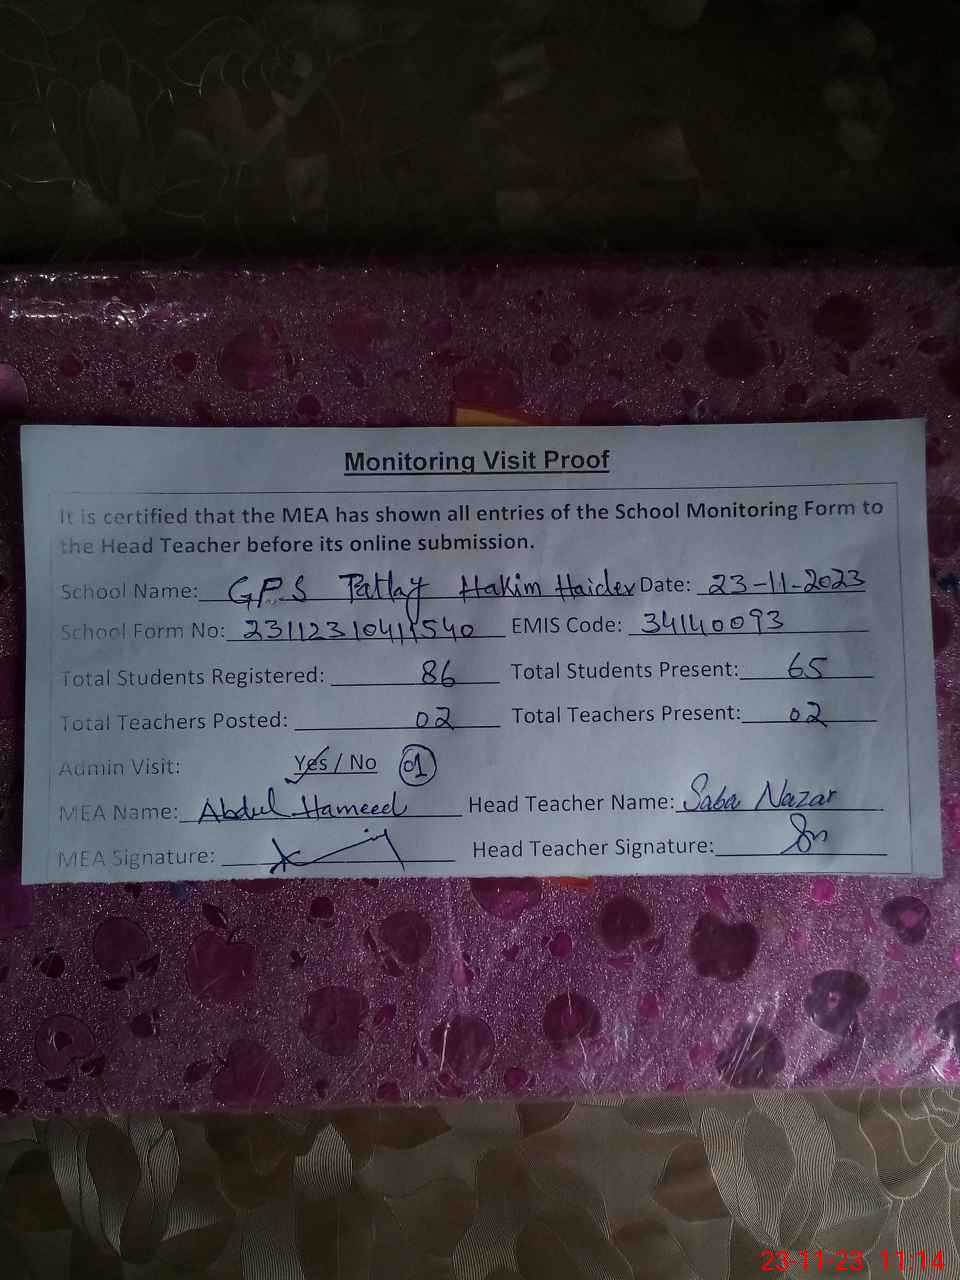 Monitoring Visit Proof
It is certified that the MEA has shown all entries of the School Monitoring Form to
the Head Teacher before its online submission.
School Name: GPS Patlay Hakim Haider Date: 23-11-2023
School Form No: EMIS Code: 34140093
Total Students Registered: 86 Total Students Present: 65
Total Teachers Posted: 02 Total Teachers Present: 02
Admin Visit: Yes / No 01
MEA Name: Abdul Hameed Head Teacher Name: Saba Nazar
MEA Signature: Head Teacher Signature:
23-11-23 11:14